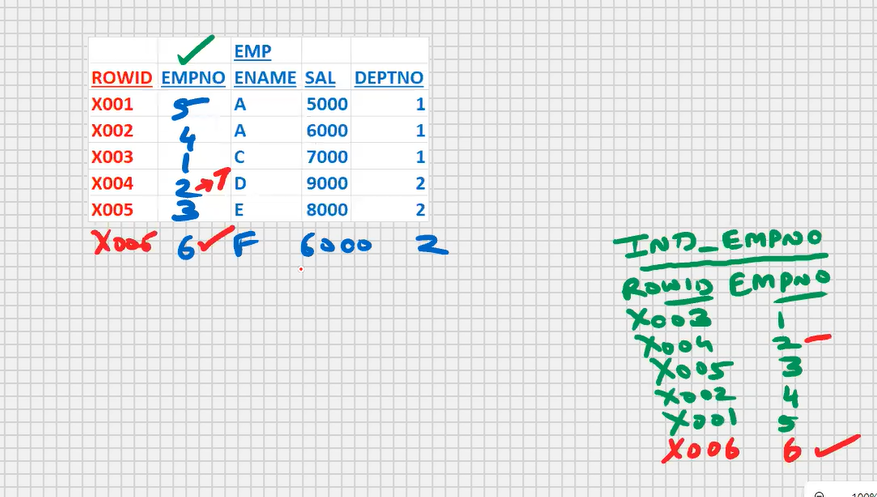 EMP
ROWID EMPNO ENAME SAL DEPTNO
X001 5 A 5000 1
X002 4 A 6000 1
X003 1 C 7000 1
X004 2 → 7 D 9000 2
X005 3 E 8000 2
X006 6 F 6000 2
IND_EMPNO
ROWID EMPNO
X003 1
X004 2
X005 3
X002 4
X001 5
X006 6